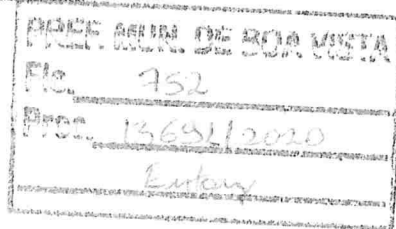 PREF. MUN. DE BOA VISTA
Fls. 752
Proc. 13691/2020